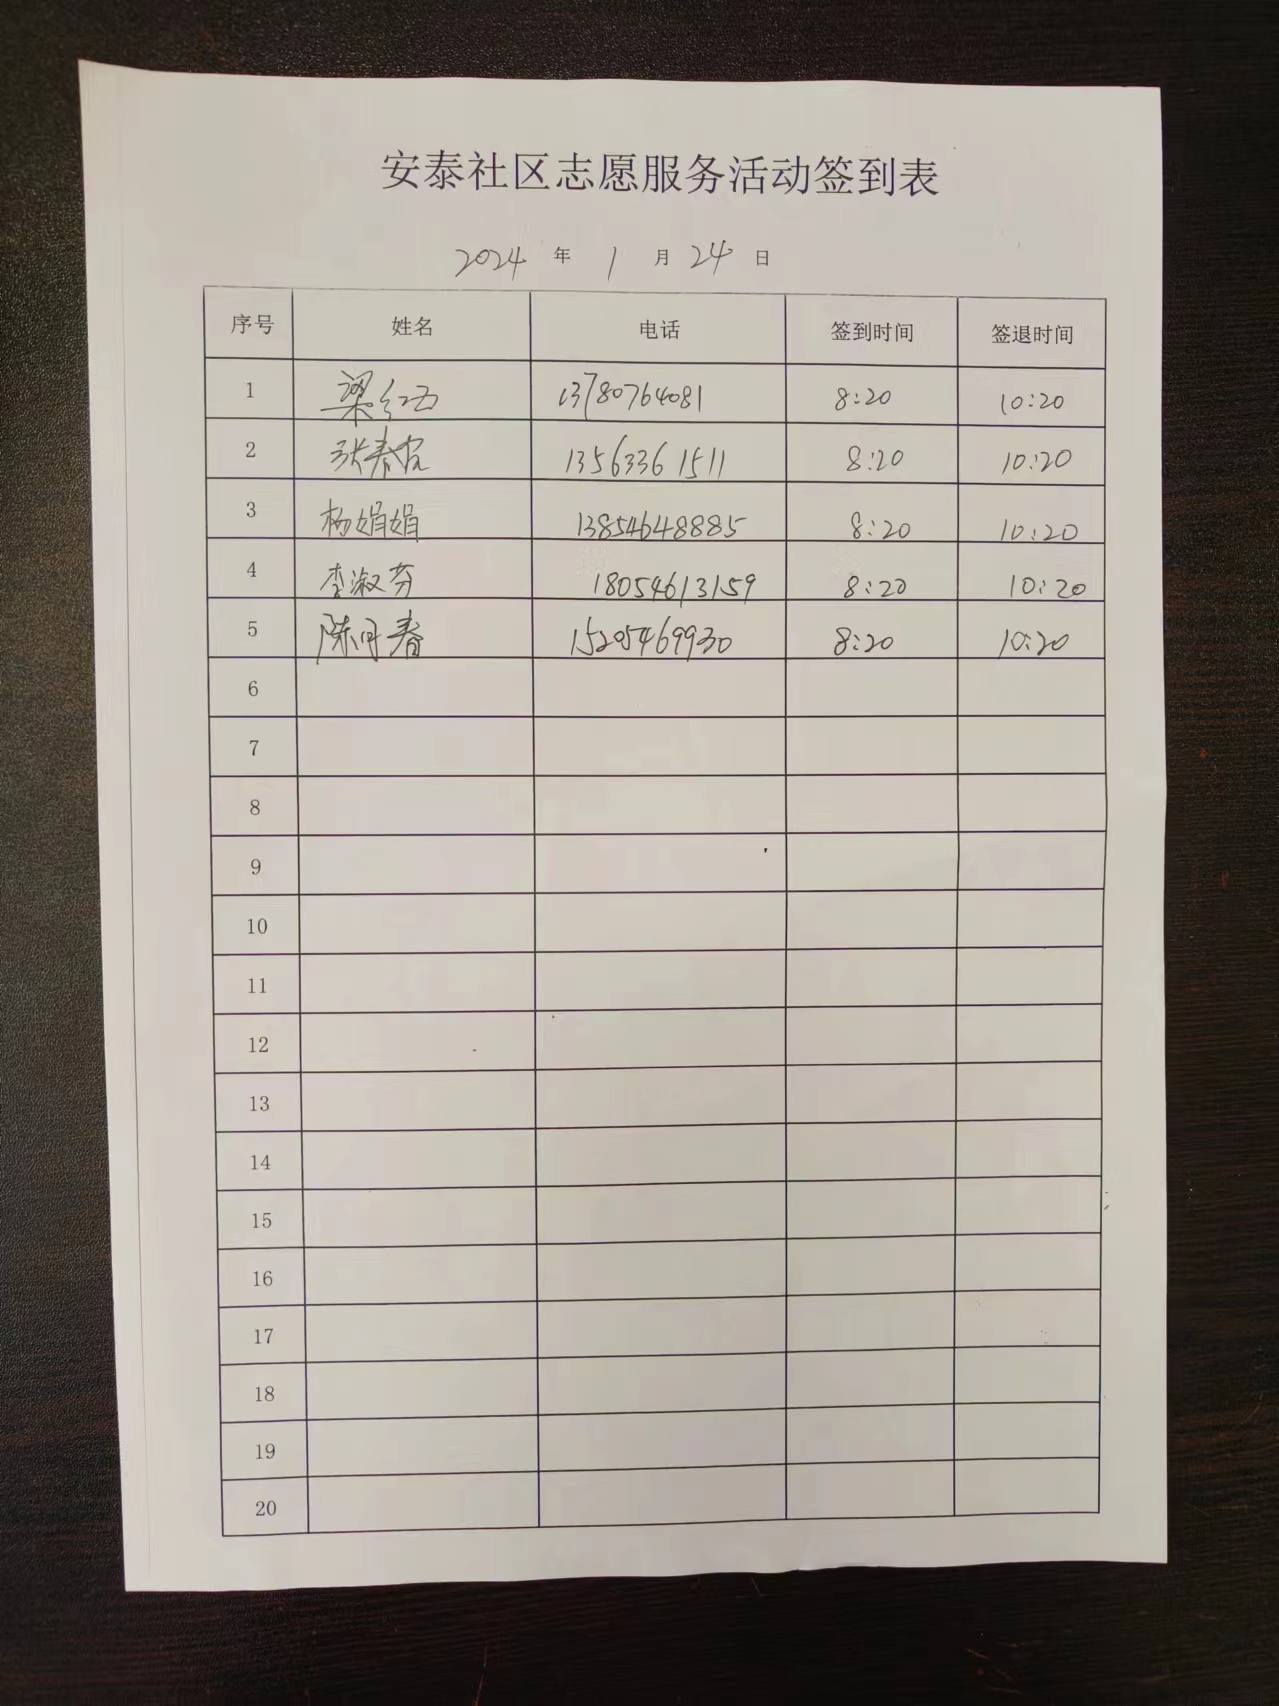 安泰社区志愿服务活动签到表
2024 年 1 月 24 日
序号 姓名 电话 签到时间 签退时间
1 梁红西 13780764081 8:20 10:20
2 张春 13563361511 8:20 10:20
3 杨娟娟 13854648885 8:20 10:20
4 李淑芬 18054613159 8:20 10:20
5 陈月春 15205469930 8:20 10:20
6
7
8
9
10
11
12
13
14
15
16
17
18
19
20